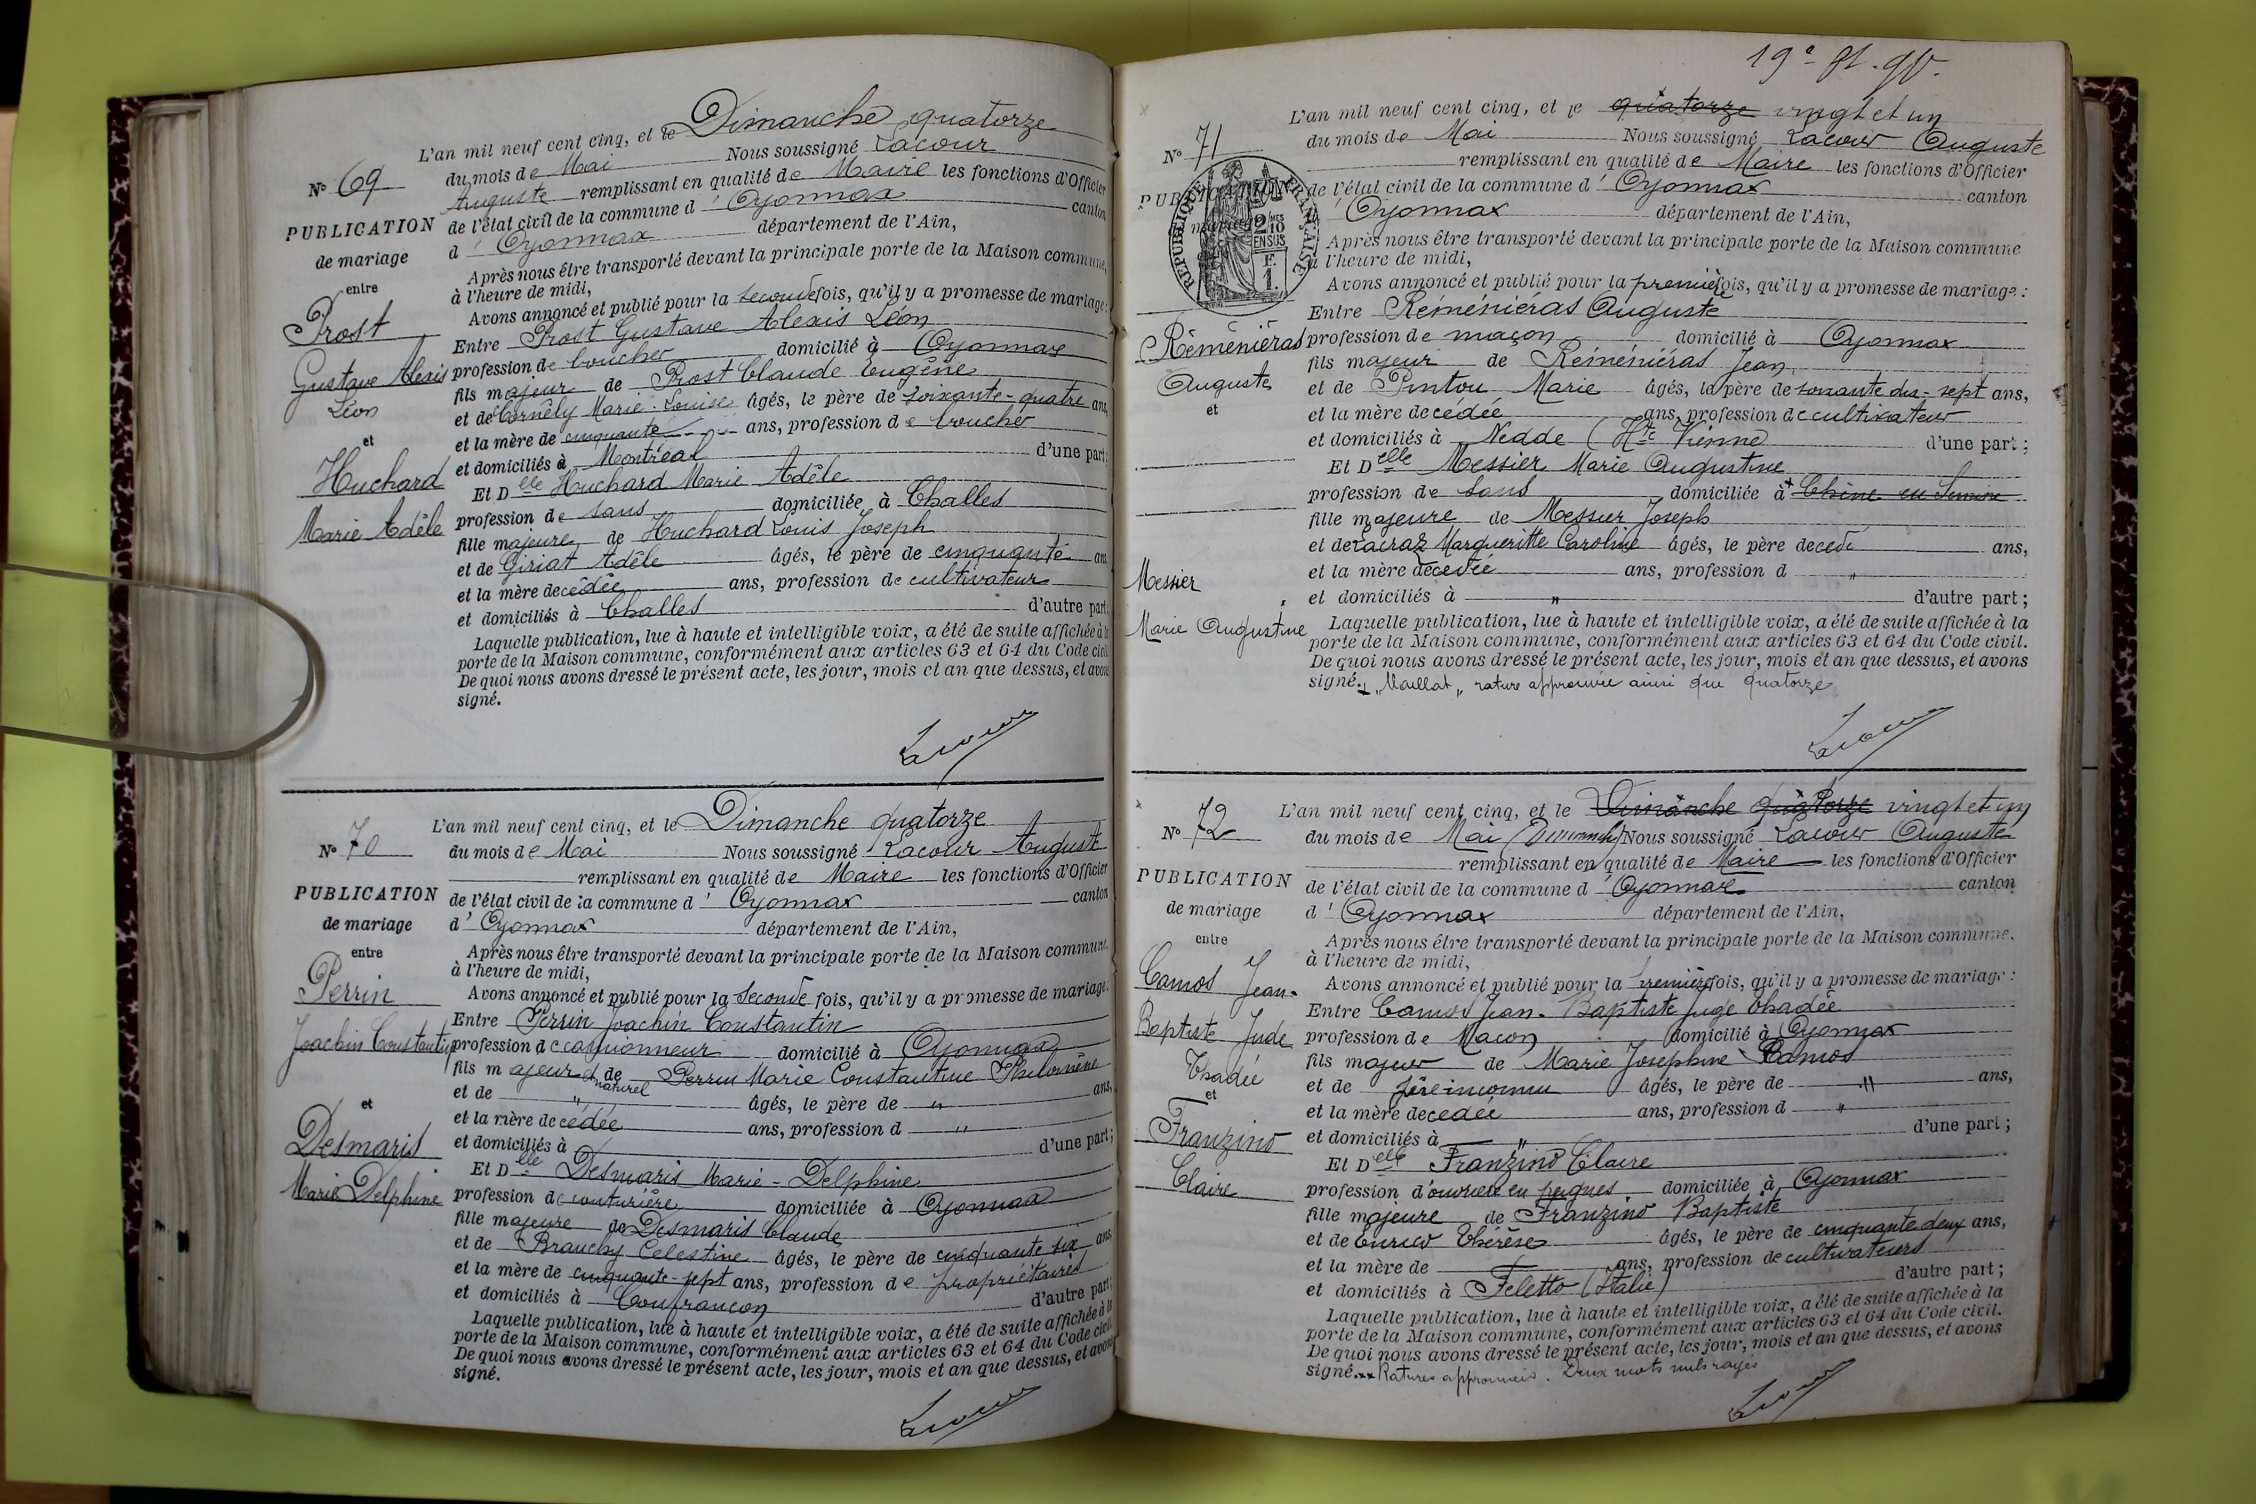 L'an mil neuf cent cinq, et le Dimanche quatorze
du mois de Mai Nous soussigné Lacour
Auguste remplissant en qualité de Maire les fonctions d'Officier
de l'état civil de la commune d'Oyonnax canton
d'Oyonnax département de l'Ain,
Après nous être transporté devant la principale porte de la Maison commune,
à l'heure de midi,
Avons annoncé et publié pour la seconde fois, qu'il y a promesse de mariage:
Entre Prost Gustave Alexis Léon
profession de boucher domicilié à Oyonnax
fils majeur de Prost Claude Eugène
et de Cornély Marie-Louise âgés, le père de soixante-quatre ans,
et la mère de cinquante ans, profession de boucher
et domiciliés à Montréal d'une part;
Et Delle Huchard Marie Adèle
profession de sans domiciliée à Challes
fille majeure de Huchard Louis Joseph
et de Giriat Adèle âgés, le père de cinquante ans
et la mère decédée ans, profession de cultivateur
et domiciliés à Challes d'autre part;
Laquelle publication, lue à haute et intelligible voix, a été de suite affichée à la
porte de la Maison commune, conformément aux articles 63 et 64 du Code civil.
De quoi nous avons dressé le présent acte, les jour, mois et an que dessus, et avons
signé.
Lacour
No 69
PUBLICATION
de mariage
entre
Prost
Gustave Alexis
Léon
et
Huchard
Marie Adèle
L'an mil neuf cent cinq, et le Dimanche quatorze
du mois de Mai Nous soussigné Lacour August
remplissant en qualité de Maire les fonctions d'Officier
de l'état civil de la commune d'Oyonnax canton
d'Oyonnax département de l'Ain,
Après nous être transporté devant la principale porte de la Maison commune.
à l'heure de midi,
Avons annoncé et publié pour la seconde fois, qu'il y a promesse de mariage:
Entre Perrin Joachin Constantin
profession de camionneur domicilié à Oyonnax
fils majeur et naturel de Perrin Marie Constantine Philomène
et de " âgés, le père de " ans,
et la mère decédée ans, profession d "
et domiciliés à d'une part;
Et Delle Desmaris Marie-Delphine
profession de couturière domiciliée à Oyonnax
fille majeure de Desmaris Claude
et de Brauchy Celestine âgés, le père de cinquante six ans
et la mère de cinquante-sept ans, profession de propriétaires
et domiciliés à Confrancon d'autre part;
Laquelle publication, lue à haute et intelligible voix, a été de suite affichée à la
porte de la Maison commune, conformément aux articles 63 et 64 du Code civil.
De quoi nous avons dressé le présent acte, les jour, mois et an que dessus, et avons
signé.
Lacour
No 70
PUBLICATION
de mariage
entre
Perrin
Joachin Constantin
et
Desmaris
Marie Delphine
L'an mil neuf cent cinq, et le quatorze vingt et un
du mois de Mai Nous soussigné Lacour Auguste
remplissant en qualité de Maire les fonctions d'Officier
de l'état civil de la commune d'Oyonnax canton
Oyonnax département de l'Ain,
Après nous être transporté devant la principale porte de la Maison commune
à l'heure de midi,
Avons annoncé et publié pour la première fois, qu'il y a promesse de mariage:
Entre Réméniéras Auguste
profession de maçon domicilié à Oyonnax
fils majeur de Réméniéras Jean
et de Pintou Marie âgés, le père de soixante dix-sept ans,
et la mère decédée ans, profession de cultivateur
et domiciliés à Nedde (Hte Vienne) d'une part;
Et Delle Messier Marie Augustine
profession de sans domiciliée à
fille majeure de Messier Joseph
et de Lacraz Margueritte Caroline âgés, le père decédé ans,
et la mère decedée ans, profession d "
et domiciliés à " d'autre part;
Laquelle publication, lue à haute et intelligible voix, a été de suite affichée à la
porte de la Maison commune, conformément aux articles 63 et 64 du Code civil.
De quoi nous avons dressé le présent acte, les jour, mois et an que dessus, et avons
signé. "Maillat" rature approuvée ainsi que quatorze
Lacour
No 71
PUBLICATION
RÉPUBLIQUE FRANÇAISE
2 MES
10
EN SUS
F.
1.
Réméniéras
Auguste
et
Messier
Marie Augustine
L'an mil neuf cent cinq, et le Dimanche quatorze vingt et un
du mois de Mai (Dimanche) Nous soussigné Lacour Auguste
remplissant en qualité de Maire les fonctions d'Officier
de l'état civil de la commune d'Oyonnax canton
d'Oyonnax département de l'Ain,
Après nous être transporté devant la principale porte de la Maison commune.
à l'heure de midi,
Avons annoncé et publié pour la première fois, qu'il y a promesse de mariage:
Entre Camos Jean-Baptiste Juge Thadée
profession de Maçon domicilié à Oyonnax
fils majeur de Marie Josephine Camos
et de père inconnu âgés, le père de " ans,
et la mère decedée ans, profession d "
et domiciliés à " d'une part;
Et Delle Franzino Claire
profession d'ouvrière en peignes domiciliée à Oyonnax
fille majeure de Franzino Baptiste
et de Enrico Thérèse âgés, le père de cinquante deux ans,
et la mère de ans, profession de cultivateurs
et domiciliés à Feletto (Italie) d'autre part;
Laquelle publication, lue à haute et intelligible voix, a été de suite affichée à la
porte de la Maison commune, conformément aux articles 63 et 64 du Code civil.
De quoi nous avons dressé le présent acte, les jour, mois et an que dessus, et avons
signé. xx Ratures approuvées. Deux mots nuls rayés
Lacour
No 72
PUBLICATION
de mariage
entre
Camos Jean-
Baptiste Jude
Thadée
et
Franzino
Claire